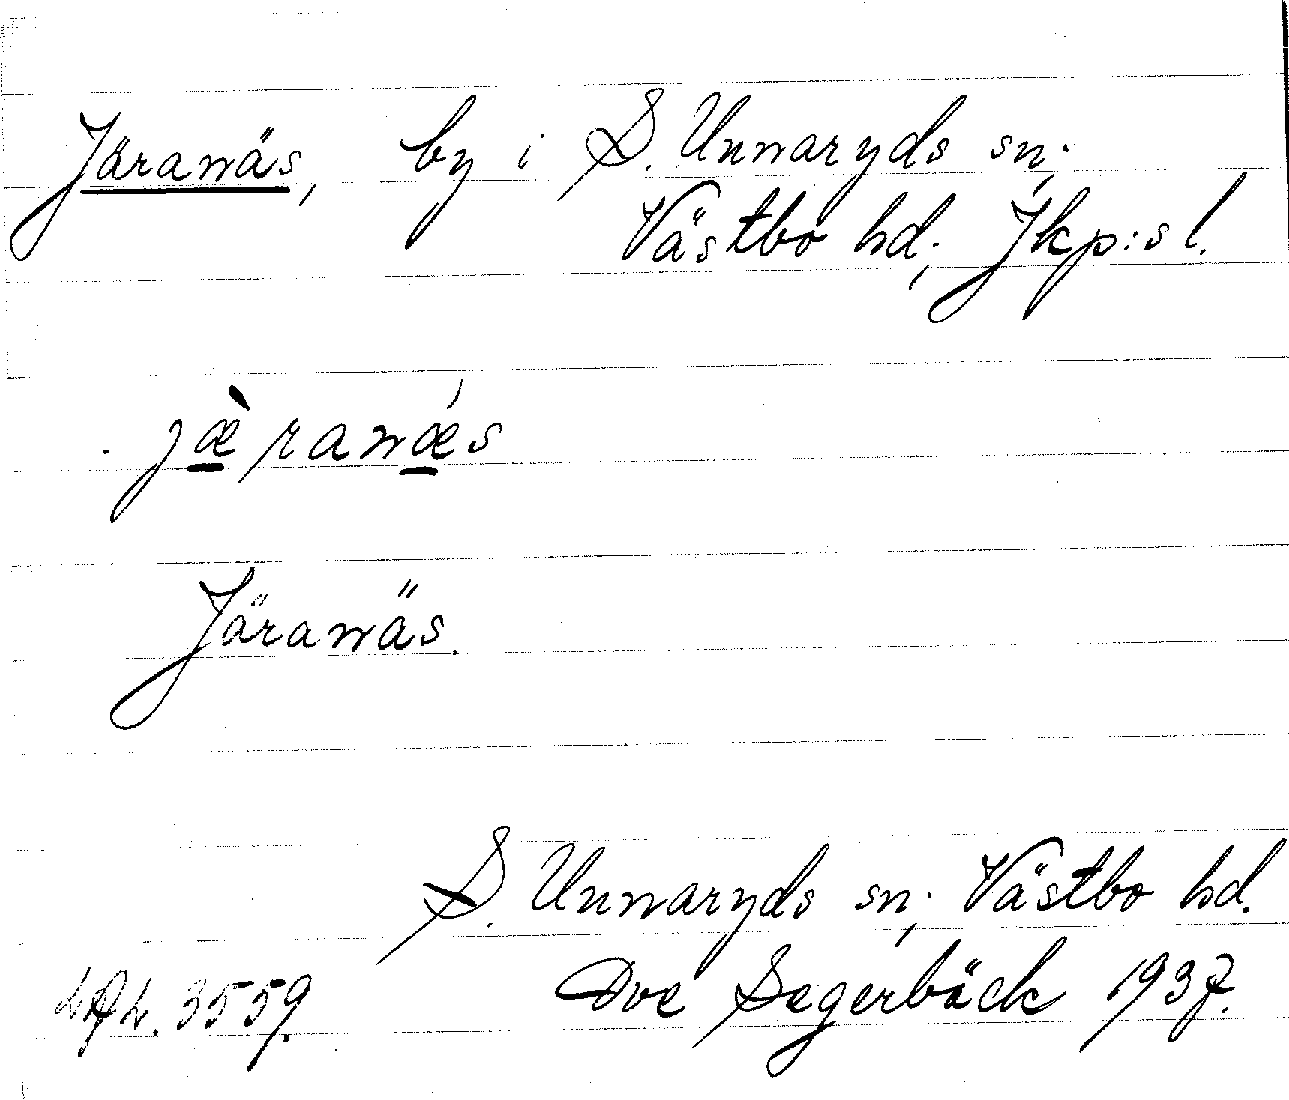 Järanäs, by i S. Unnaryds sn;
Västbo hd; Jkp:s l.
jæ̀ranǽs
Järanäs.
S. Unnaryds sn; Västbo hd.
3559. Ove Segerbäck 1937.